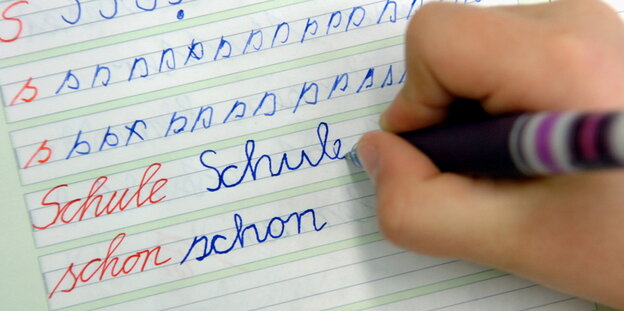 S
s s s s s s s s s s s s s
s s s s s s s s s s s s s
Schule Schule
schon schon